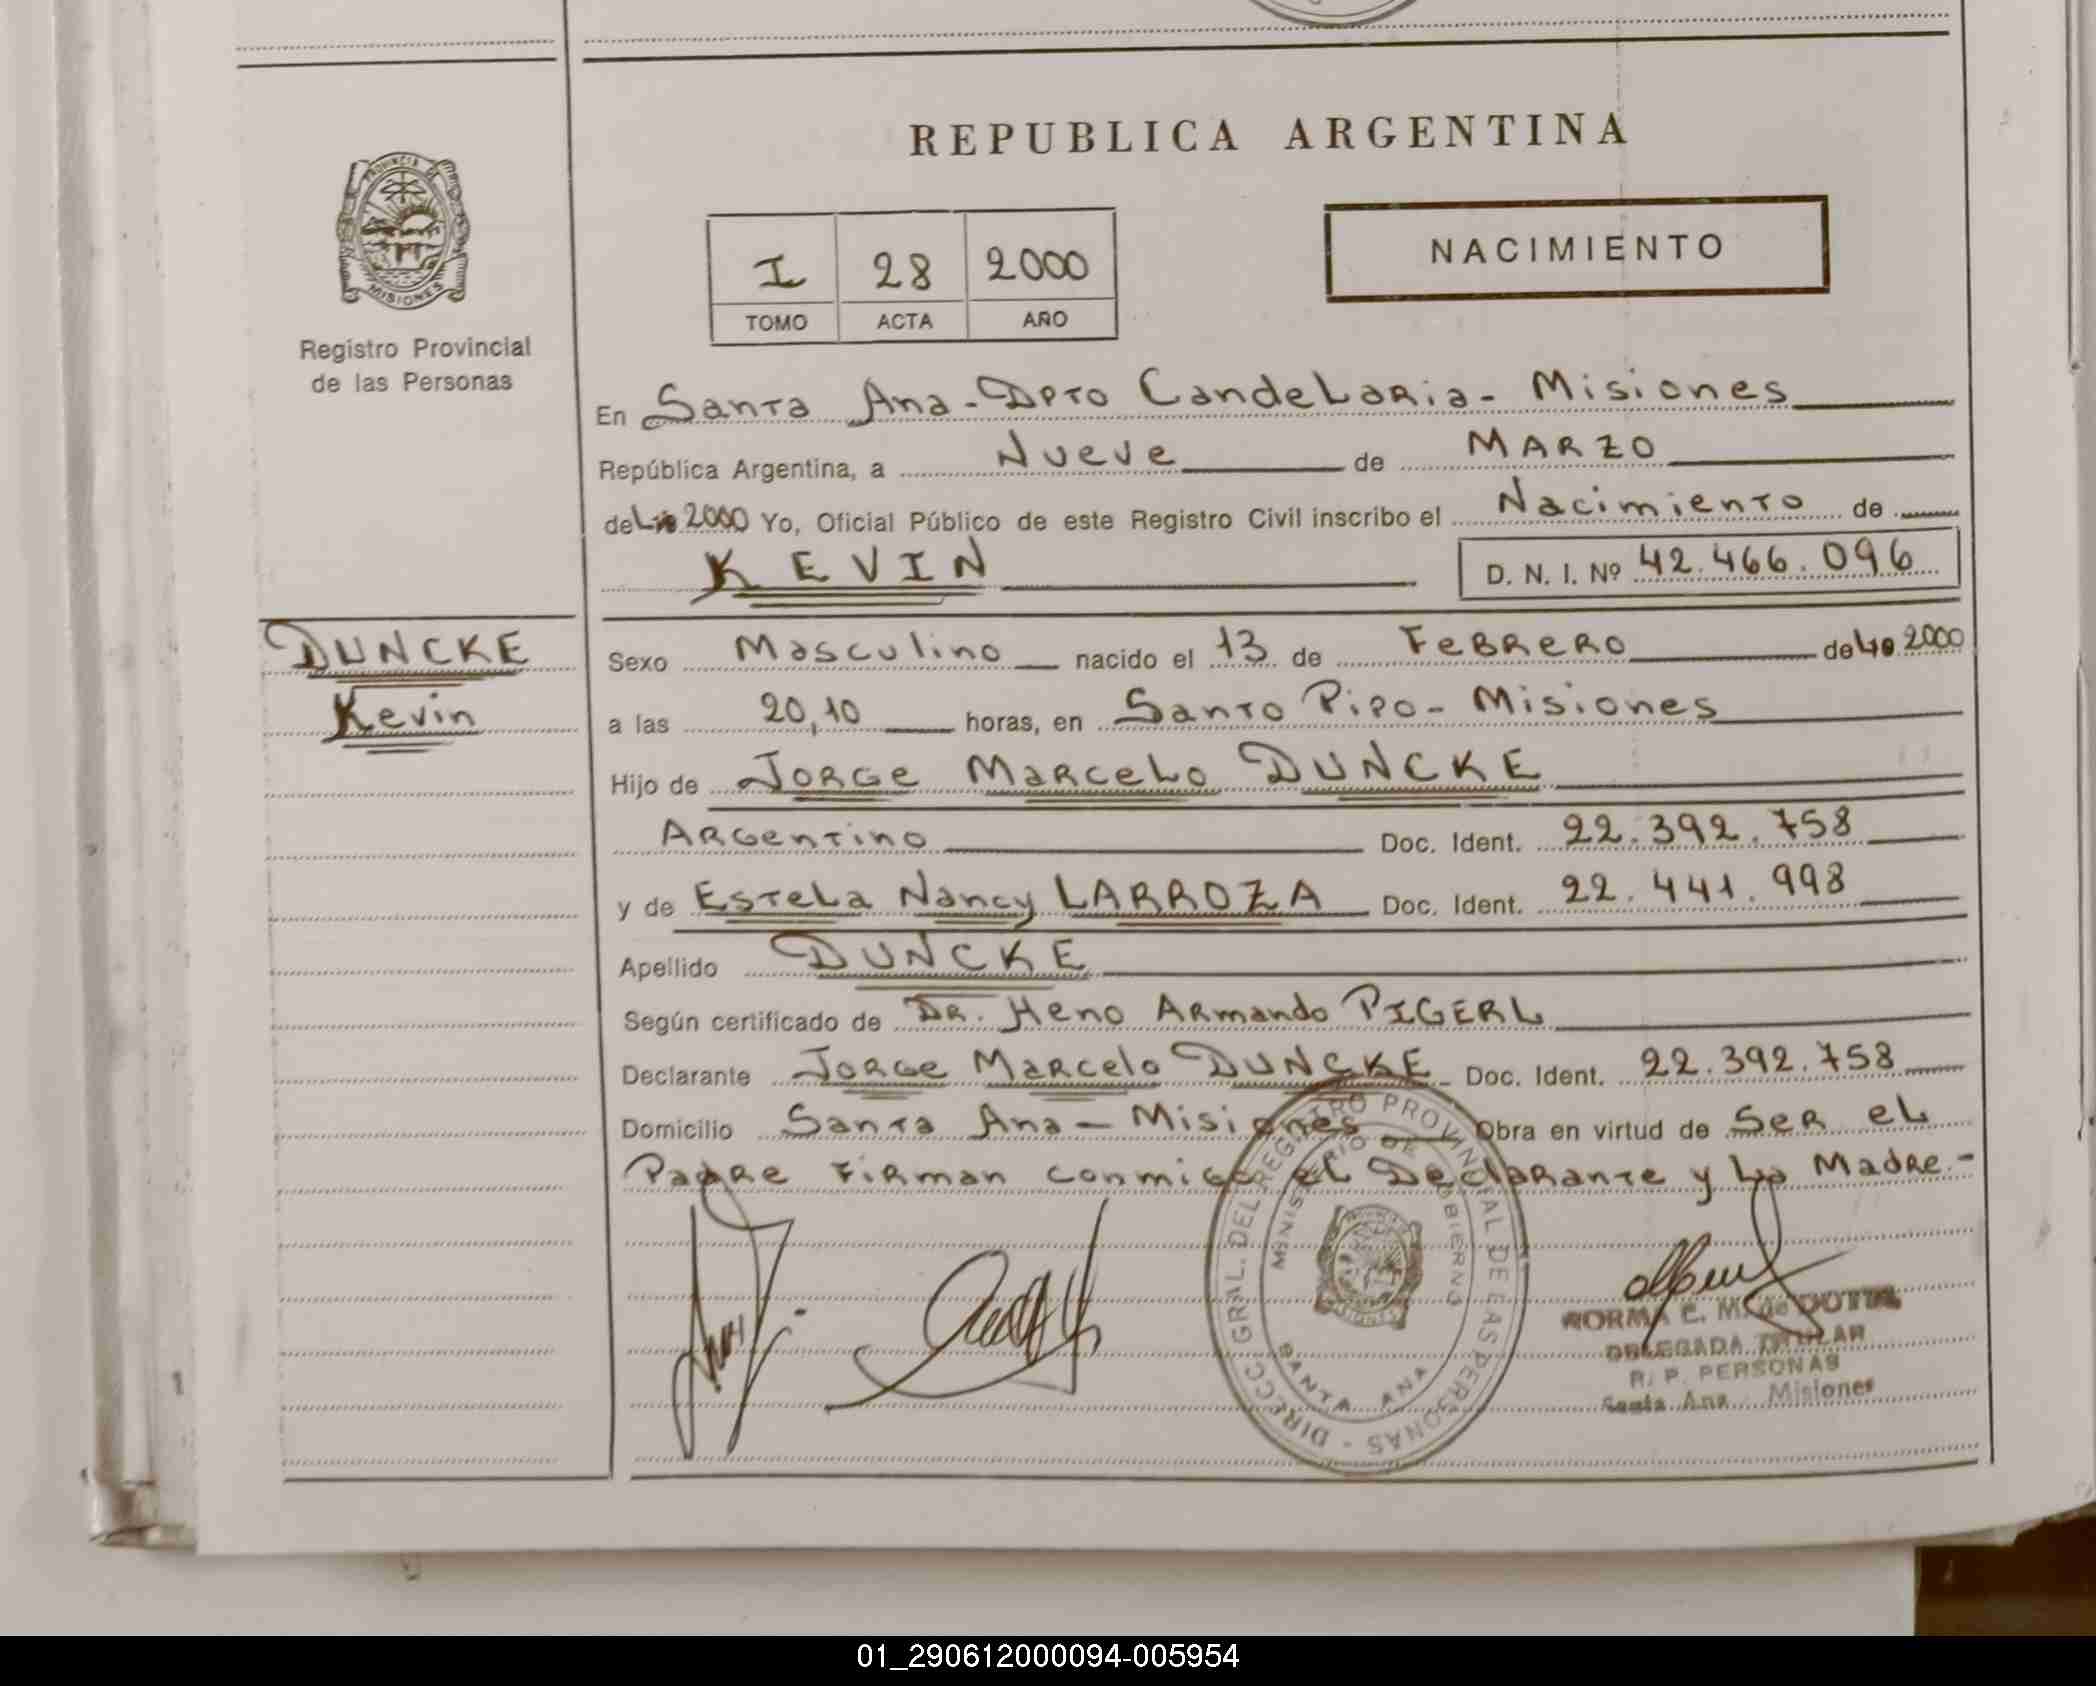 REPUBLICA ARGENTINA
PROVINCIA DE MISIONES
Registro Provincial
de las Personas
I 28 2000
TOMO ACTA AÑO
NACIMIENTO
En Santa Ana - Dpto Candelaria - Misiones
República Argentina, a Nueve de MARZO
del 2000 Yo, Oficial Público de este Registro Civil inscribo el Nacimiento de
KEVIN D. N. I. Nº 42.466.096
DUNCKE
Kevin
Sexo Masculino nacido el 13 de Febrero del 2000
a las 20,10 horas, en Santo Pipo - Misiones
Hijo de Jorge Marcelo DUNCKE
Argentino Doc. Ident. 22.392.758
y de Estela Nancy LARROZA Doc. Ident. 22.441.998
Apellido DUNCKE
Según certificado de Dr. Heno Armando PIGERL
Declarante Jorge Marcelo DUNCKE Doc. Ident. 22.392.758
Domicilio Santa Ana - Misiones Obra en virtud de Ser el
Padre Firman conmigo el Declarante y La Madre.-
DIRECC. GRAL. DEL REGISTRO PROVINCIAL DE LAS PERSONAS
MINISTERIO DE GOBIERNO
SANTA ANA
NORMA E. M. de
DELEGADA TITULAR
R. P. PERSONAS
Santa Ana Misiones
01_290612000094-005954